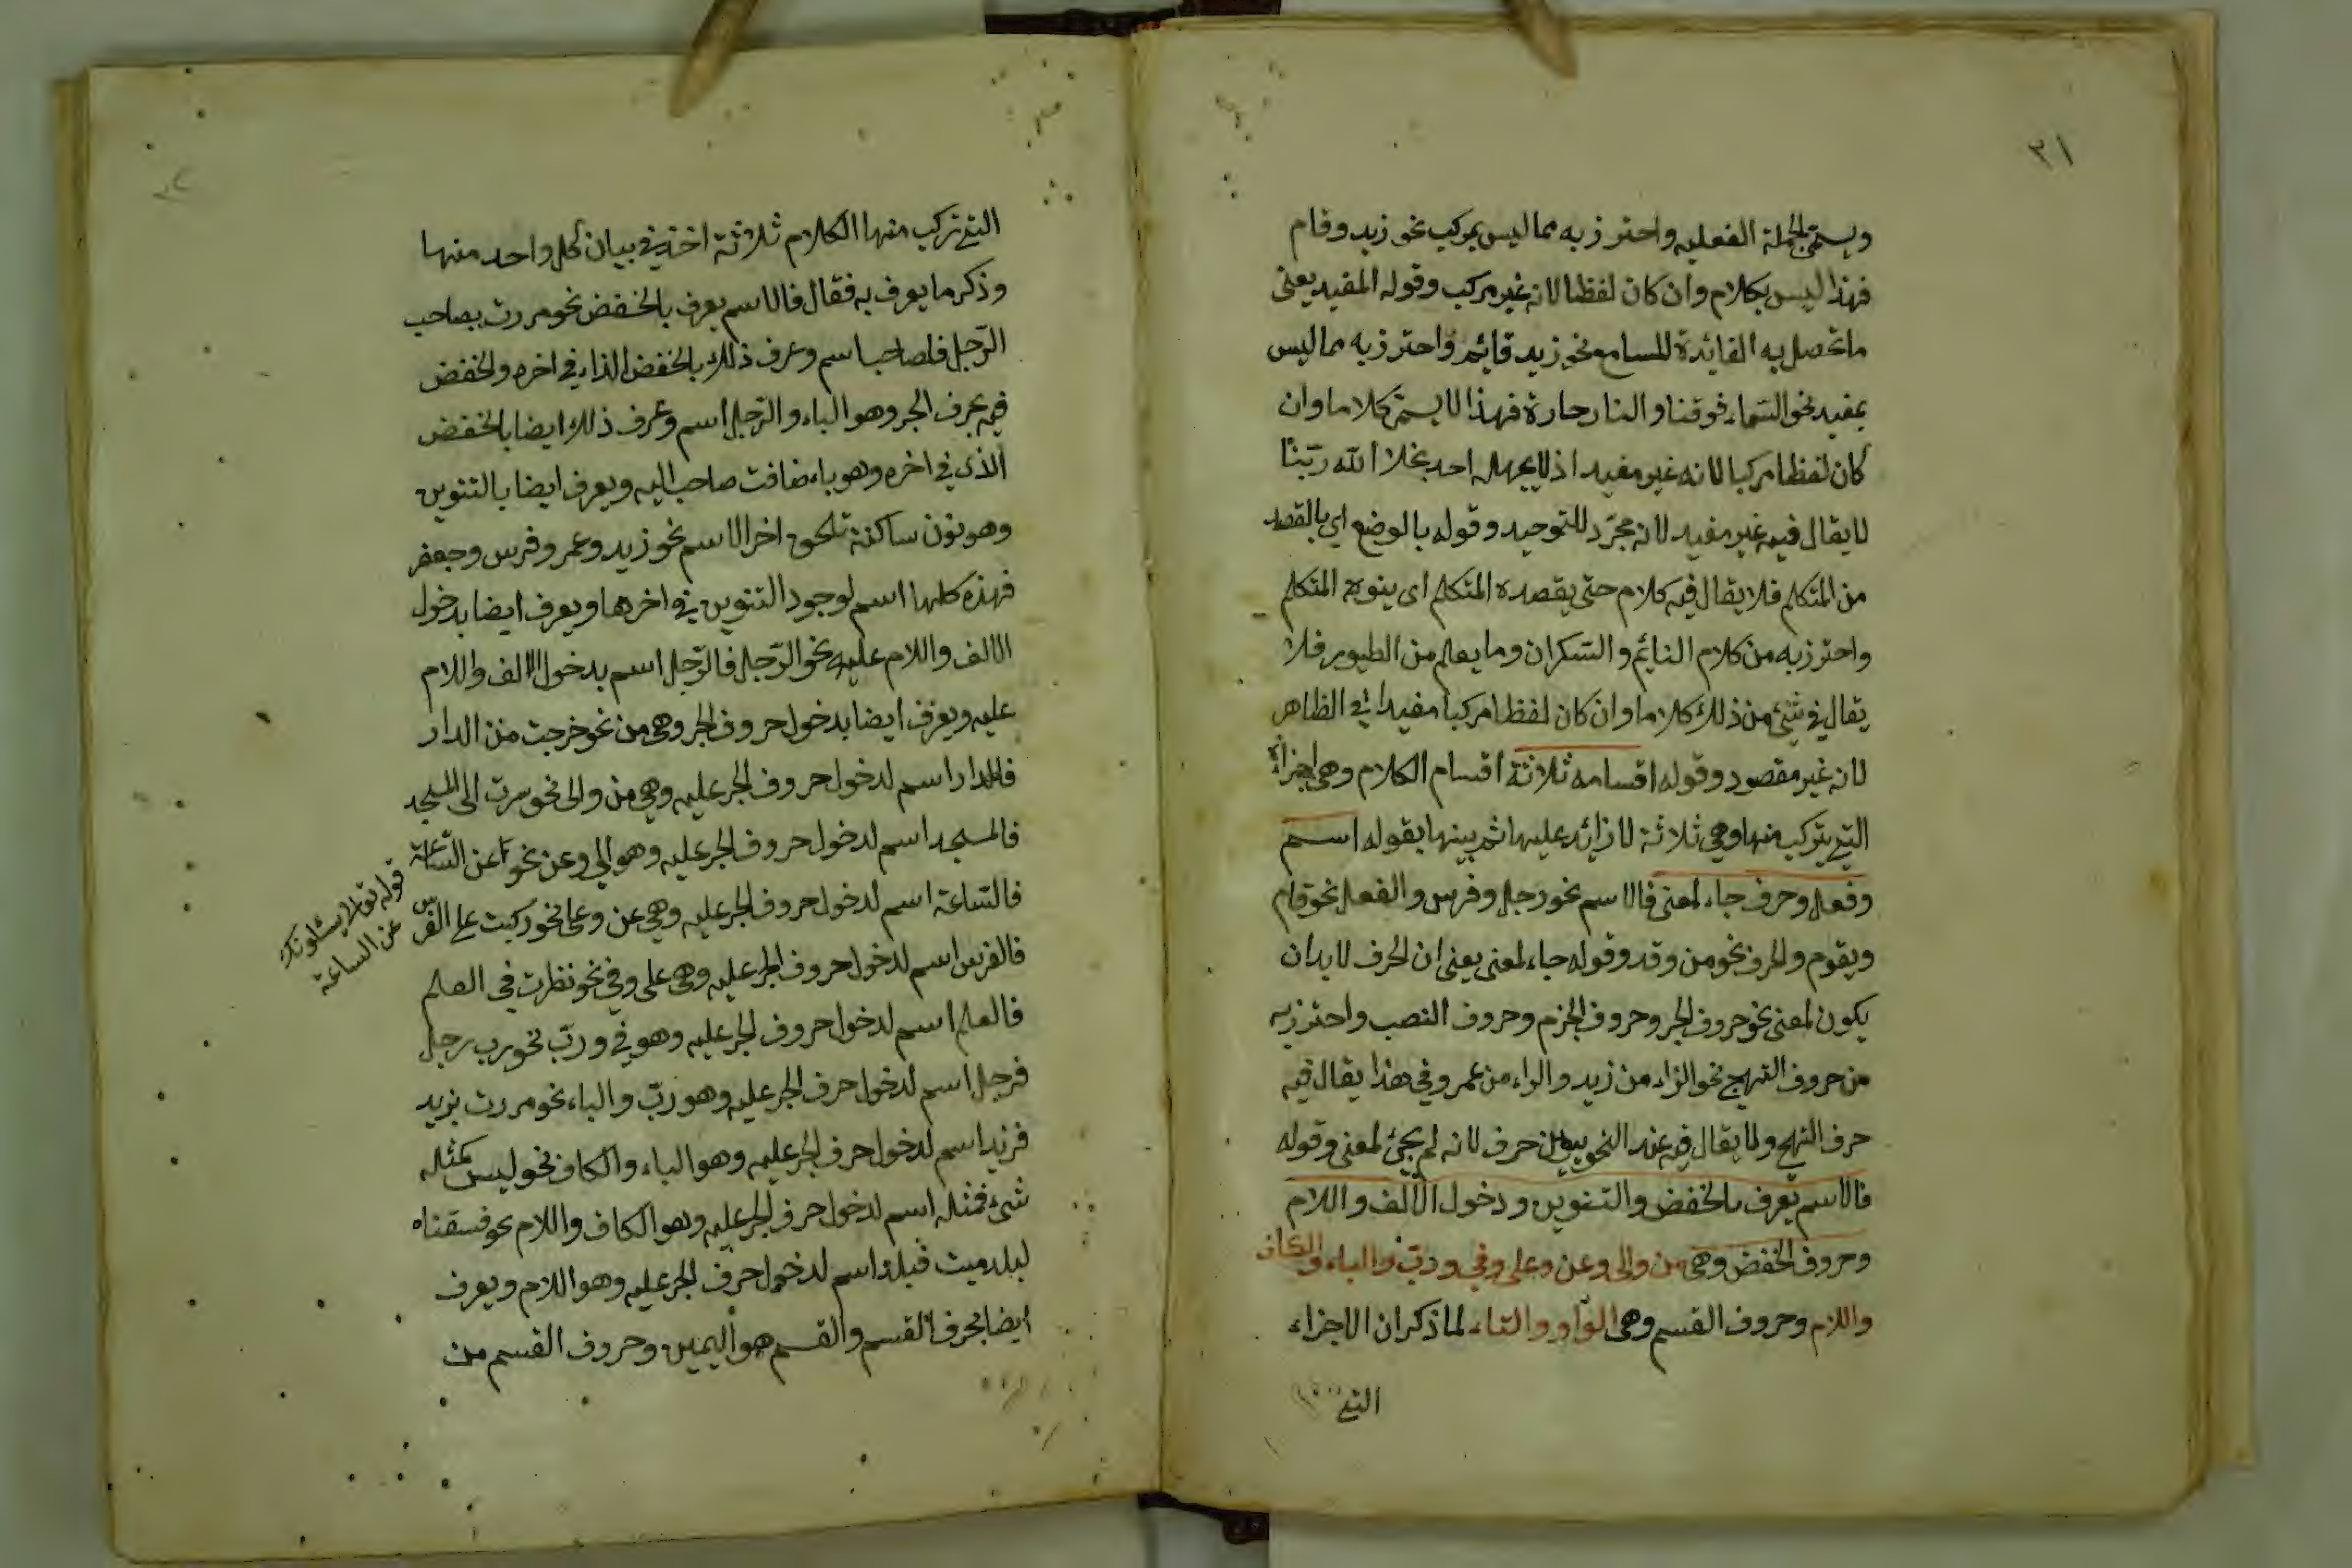 ٣١
ويسمى الجملة الفعليه واحترز به مما ليس بمركب نحو زيد وقام
فهذا ليس بكلام وان كان لفظا لانه غير مركب وقوله المفيد يعنى
ما تحصل به الفائدة للسامع نحو زيد قائم واحترز به مما ليس
بمفيد نحو السماء فوقنا والنار حارة فهذا لا يسمى كلاما وان
كان لفظا مركبا لانه غير مفيد اذ لا يجهله احد بخلا الله ربّنا
لا يقال فيه غير مفيد لانه مجرّد للتوحيد وقوله بالوضع اى بالقصد
من المتكلم فلا يقال فيه كلام حتى يقصده المتكلم اى ينويه المتكلم
واحترز به من كلام النايم والسكران وما يعلم من الطيور فلا
يقال فى شئ من ذلك كلاما وان كان لفظا مركبا مفيدا فى الظاهر
لانه غير مقصود وقوله اقسامه ثلاثة اقسام الكلام وهى اجزاؤه
التى يتركب منها وهى ثلاثة لا زائد عليها ثم بينها بقوله اسم
وفعل وحرف جاء لمعنى فالاسم نحو رجل وفرس والفعل نحو قام
ويقوم والحرف نحو من وقد وقوله جاء لمعنى يعنى ان الحرف لا بد ان
يكون لمعنى نحو حروف الجر وحروف الجزم وحروف النصب واحترز به
من حروف التهج نحو الزاء من زيد والراء من عمرو فى هذا يقال فيه
حرف التهج ولا يقال فيه عند النحويين حرف لانه لم يجئ لمعنى وقوله
فالاسم يعرف بالخفض والتنوين ودخول الالف واللام
وحروف الخفض وهى من والى وعن وعلى وفى ورب والباء والكاف
واللام وحروف القسم وهى الواو والتاء لما ذكر ان الاجزاء
التى
التى تركب منها الكلام ثلاثة اخذ فى بيان كل واحد منها
وذكر ما يعرف به فقال فالاسم يعرف بالخفض نحو مررت بصاحب
الرّجل فلصاحب اسم وعرف ذلك بالخفض الذا فى اخره والخفض
فيه بحرف الجر وهو الباء والرّجل اسم وعرف ذلك ايضا بالخفض
الذى فى اخره وهو باضافت صاحب اليه ويعرف ايضا بالتنوين
وهو نون ساكنة تلحق اخر الاسم نحو زيد وعمر وفرس وجعفر
فهذه كلها اسم لوجود التنوين فى اخرها ويعرف ايضا بدخول
الالف واللام عليه نحو الرّجل فالرّجل اسم بدخول الالف واللام
عليه ويعرف ايضا بدخول حروف الجر وهى من نحو خرجت من الدار
فالدار اسم لدخول حروف الجر عليه وهى من والى نحو سرت الى المسجد
فالمسجد اسم لدخول حروف الجر عليه وهو الى وعن نحو عن السّاعة
فالساعة اسم لدخول حروف الجر عليه وهى عن وعلى نحو ركبت على الفرس
قوله تعالى يسئلونك
عن الساعة
فالفرس اسم لدخول حروف الجر عليه وهى على وفى نحو نظرت فى العلم
فالعلم اسم لدخول حروف الجر عليه وهو فى ورب نحو رب رجل
فرجل اسم لدخول حرف الجر عليه وهو ربّ والباء نحو مررت بزيد
فزيد اسم لدخول حرف الجر عليه وهو الباء والكاف نحو ليس كمثله
شئ فمثله اسم لدخول حرف الجر عليه وهو الكاف واللام نحو فسقناه
لبلد ميت فبلد اسم لدخول حرف الجر عليه وهو اللام ويعرف
ايضا بحرف القسم والقسم هو اليمين وحروف القسم من